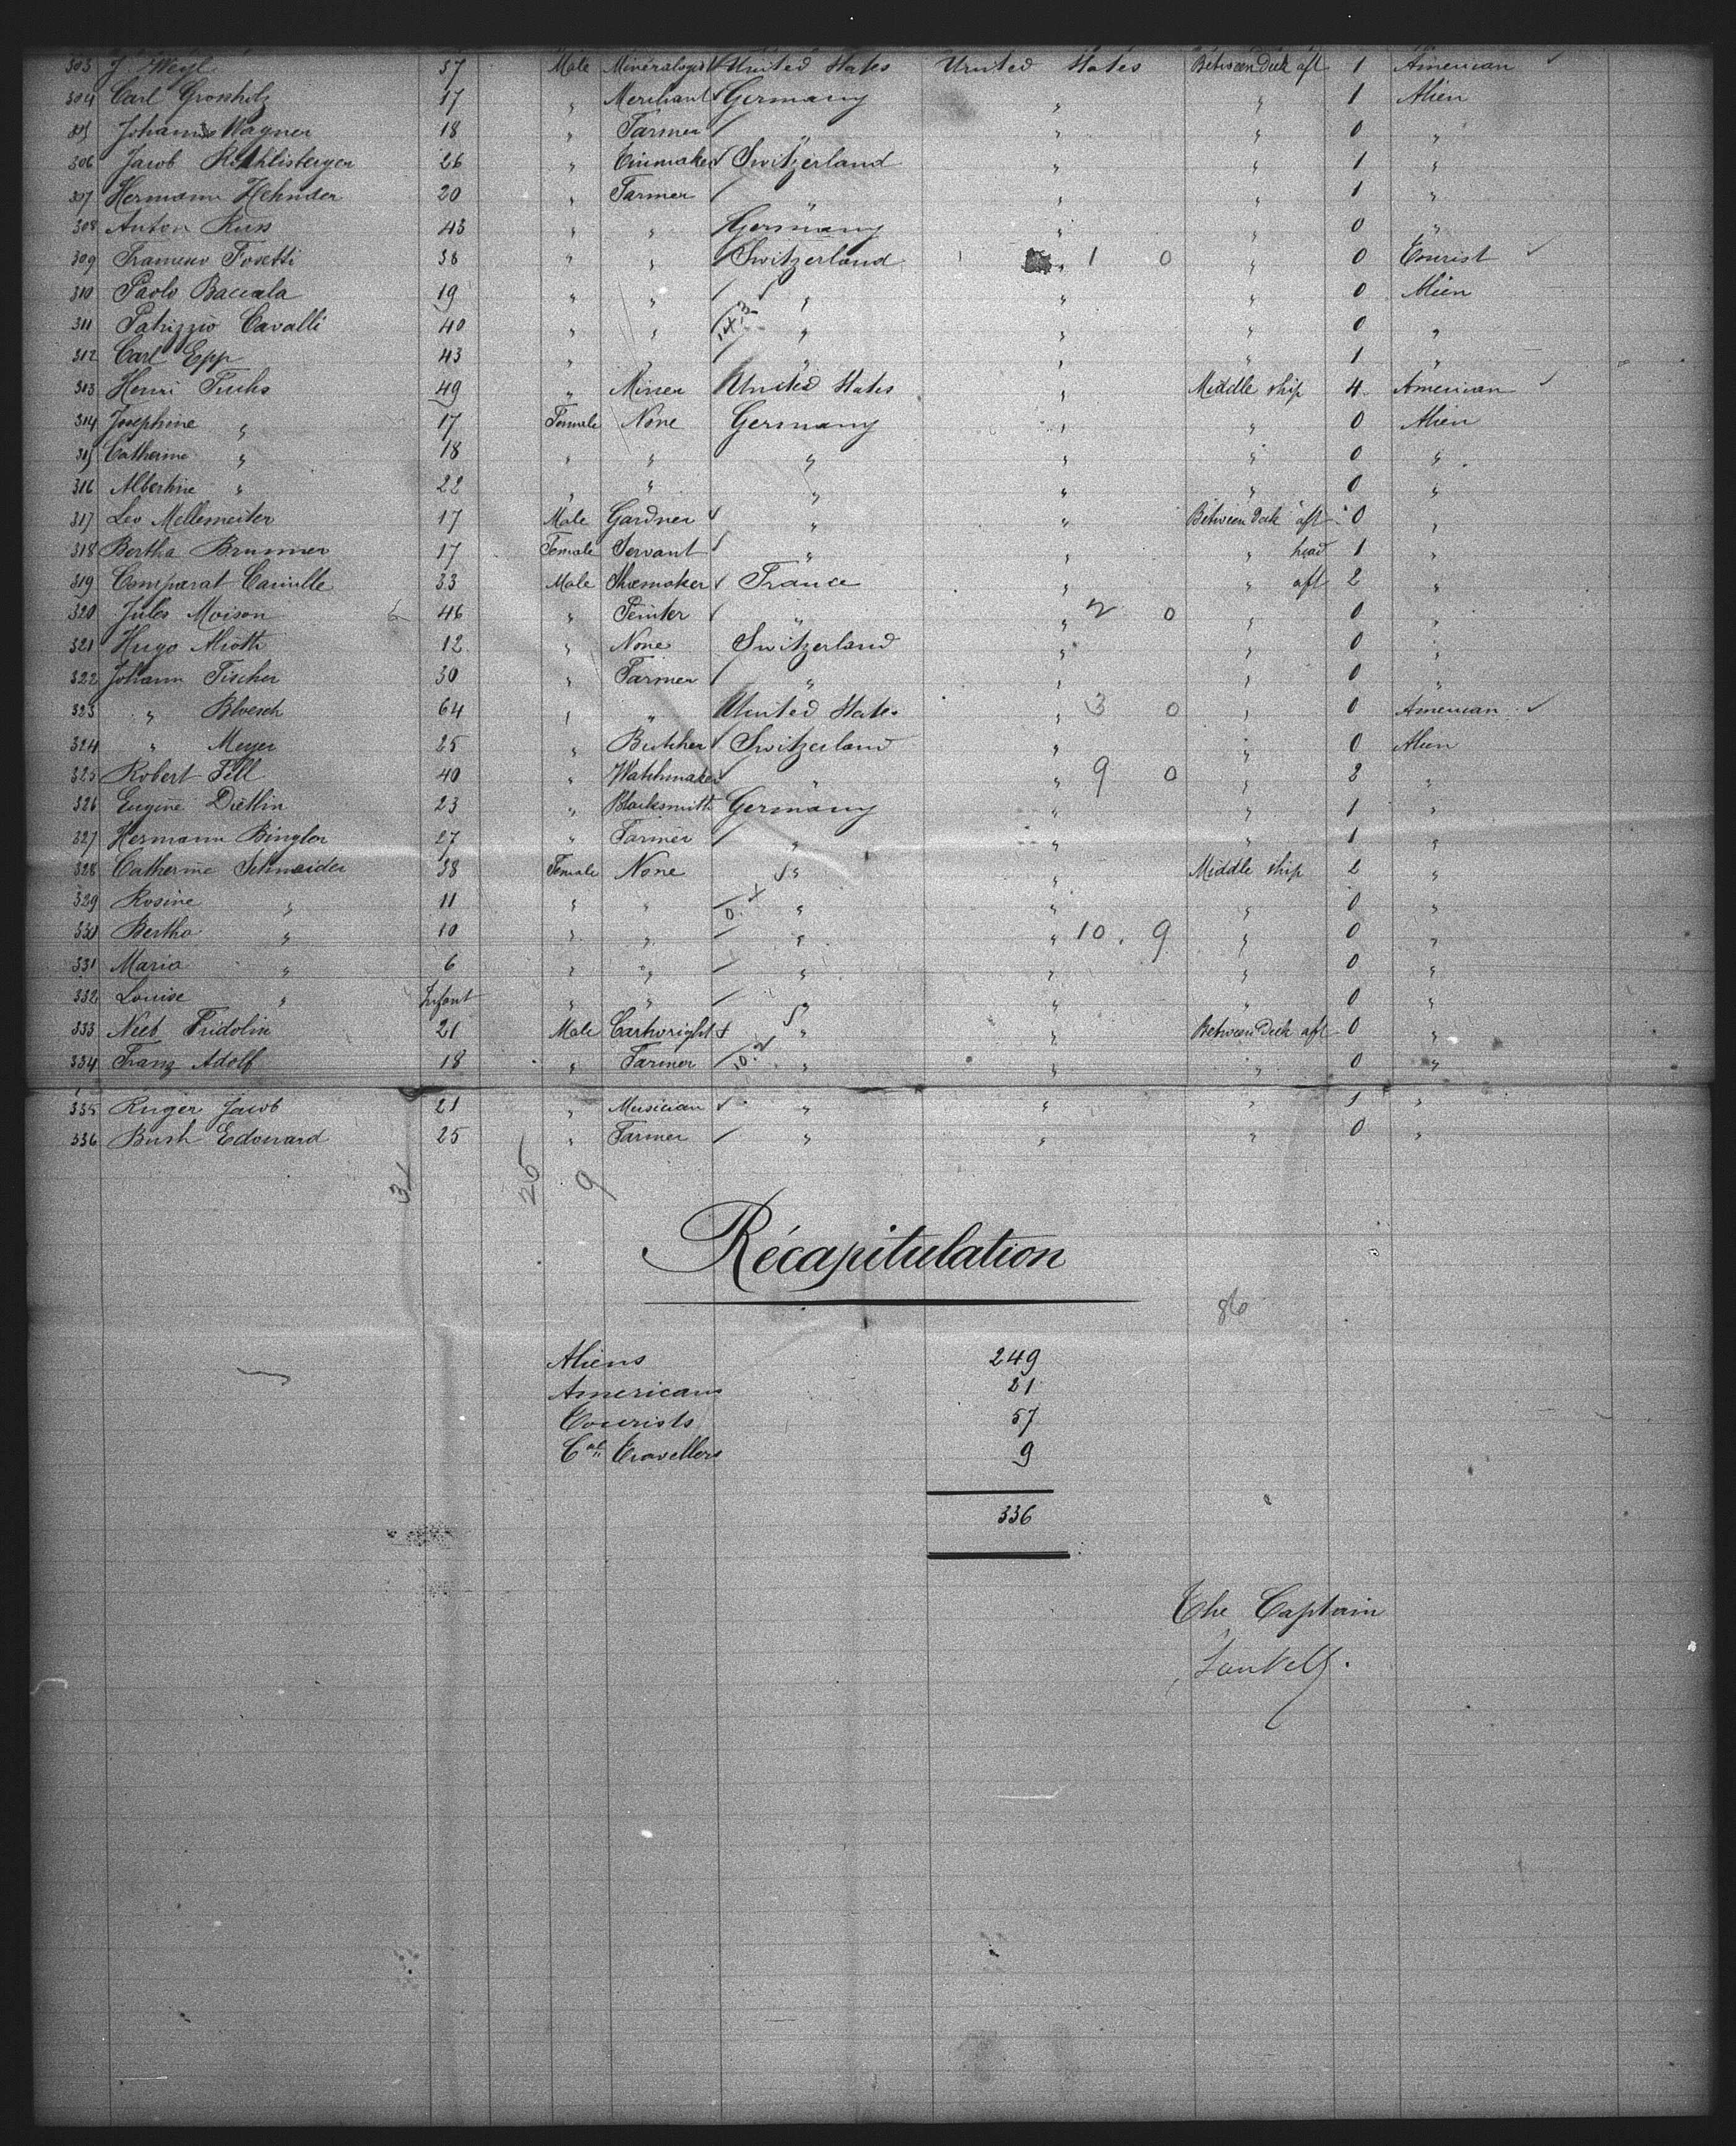 303 J. Weyl 37 Male Mineralogist United States United States Between Deck aft 1 American
304 Carl Grossholz 17 " Merchant Germany " " 1 Alien
305 Johann Wagner 18 " Farmer " " " 0 "
306 Jacob Röthlisberger 26 " Tinmaker Switzerland " " 1 "
307 Hermann Zehnder 20 " Farmer " " " 1 "
308 Anton Russ 43 " " Germany " " 0 "
309 Fosetti 38 " " Switzerland " 1 0 " 0 Tourist
310 Paolo Baccala 19 " " " " " 0 Alien
311 Patrizzio Cavalli 40 " " " " " 0 "
312 Carl Epp 43 " " " " " 1 "
313 Henri Fuchs 49 " Miner United States " Middle ship 4 American
314 Josephine " 17 Female None Germany " " 0 Alien
315 Catherine " 18 " " " " " 0 "
316 Albertine " 22 " " " " " 0 "
317 Leo Mellemeiter 17 Male Gardner " " Between Deck aft 0 "
318 Bertha Brunner 17 Female Servant " " " head 1 "
319 Comparat Camille 33 Male Shoemaker France " " aft 2 "
320 Jules Moison 46 " Peinter " " 2 0 " 0 "
321 Hugo Alioth 12 " None Switzerland " " 0 "
322 Johann Fischer 30 " Farmer " " " 0 "
323 " Bloesch 64 " " United States " 3 0 " 0 American
324 " Meyer 25 " Butcher Switzerland " " 0 Alien
325 Robert Fell 40 " Watchmaker " " 9 0 " 3 "
326 Eugène Dietlin 23 " Blacksmith Germany " " 1 "
327 Hermann Bingler 27 " Farmer " " " 1 "
328 Catherine Schneider 38 Female None " " Middle ship 2 "
329 Rosine " 11 " " " " " 0 "
330 Bertha " 10 " " " " 10. 9 " 0 "
331 Maria " 6 " " " " " 0 "
332 Louise " Infant " " " " " 0 "
333 Neeb Fridolin 21 Male Cartwright " " Between Deck aft 0 "
334 Franz Adolf 18 " Farmer " " " 0 "
335 Ruger Jacob 21 " Musician " " " 1 "
336 Bush Edouard 25 " Farmer " " " 0 "
31 25 9
Récapitulation
86
Aliens 249
Americans 21
Tourists 57
Cal Travellers 9
336
The Captain